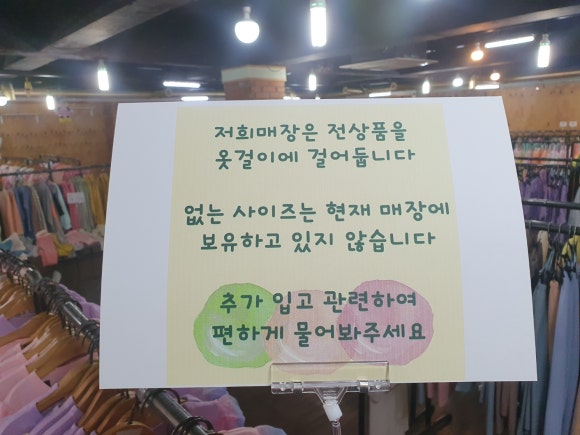 저희매장은 전상품을
옷걸이에 걸어둡니다
없는 사이즈는 현재 매장에
보유하고 있지 않습니다
추가 입고 관련하여
편하게 물어봐주세요